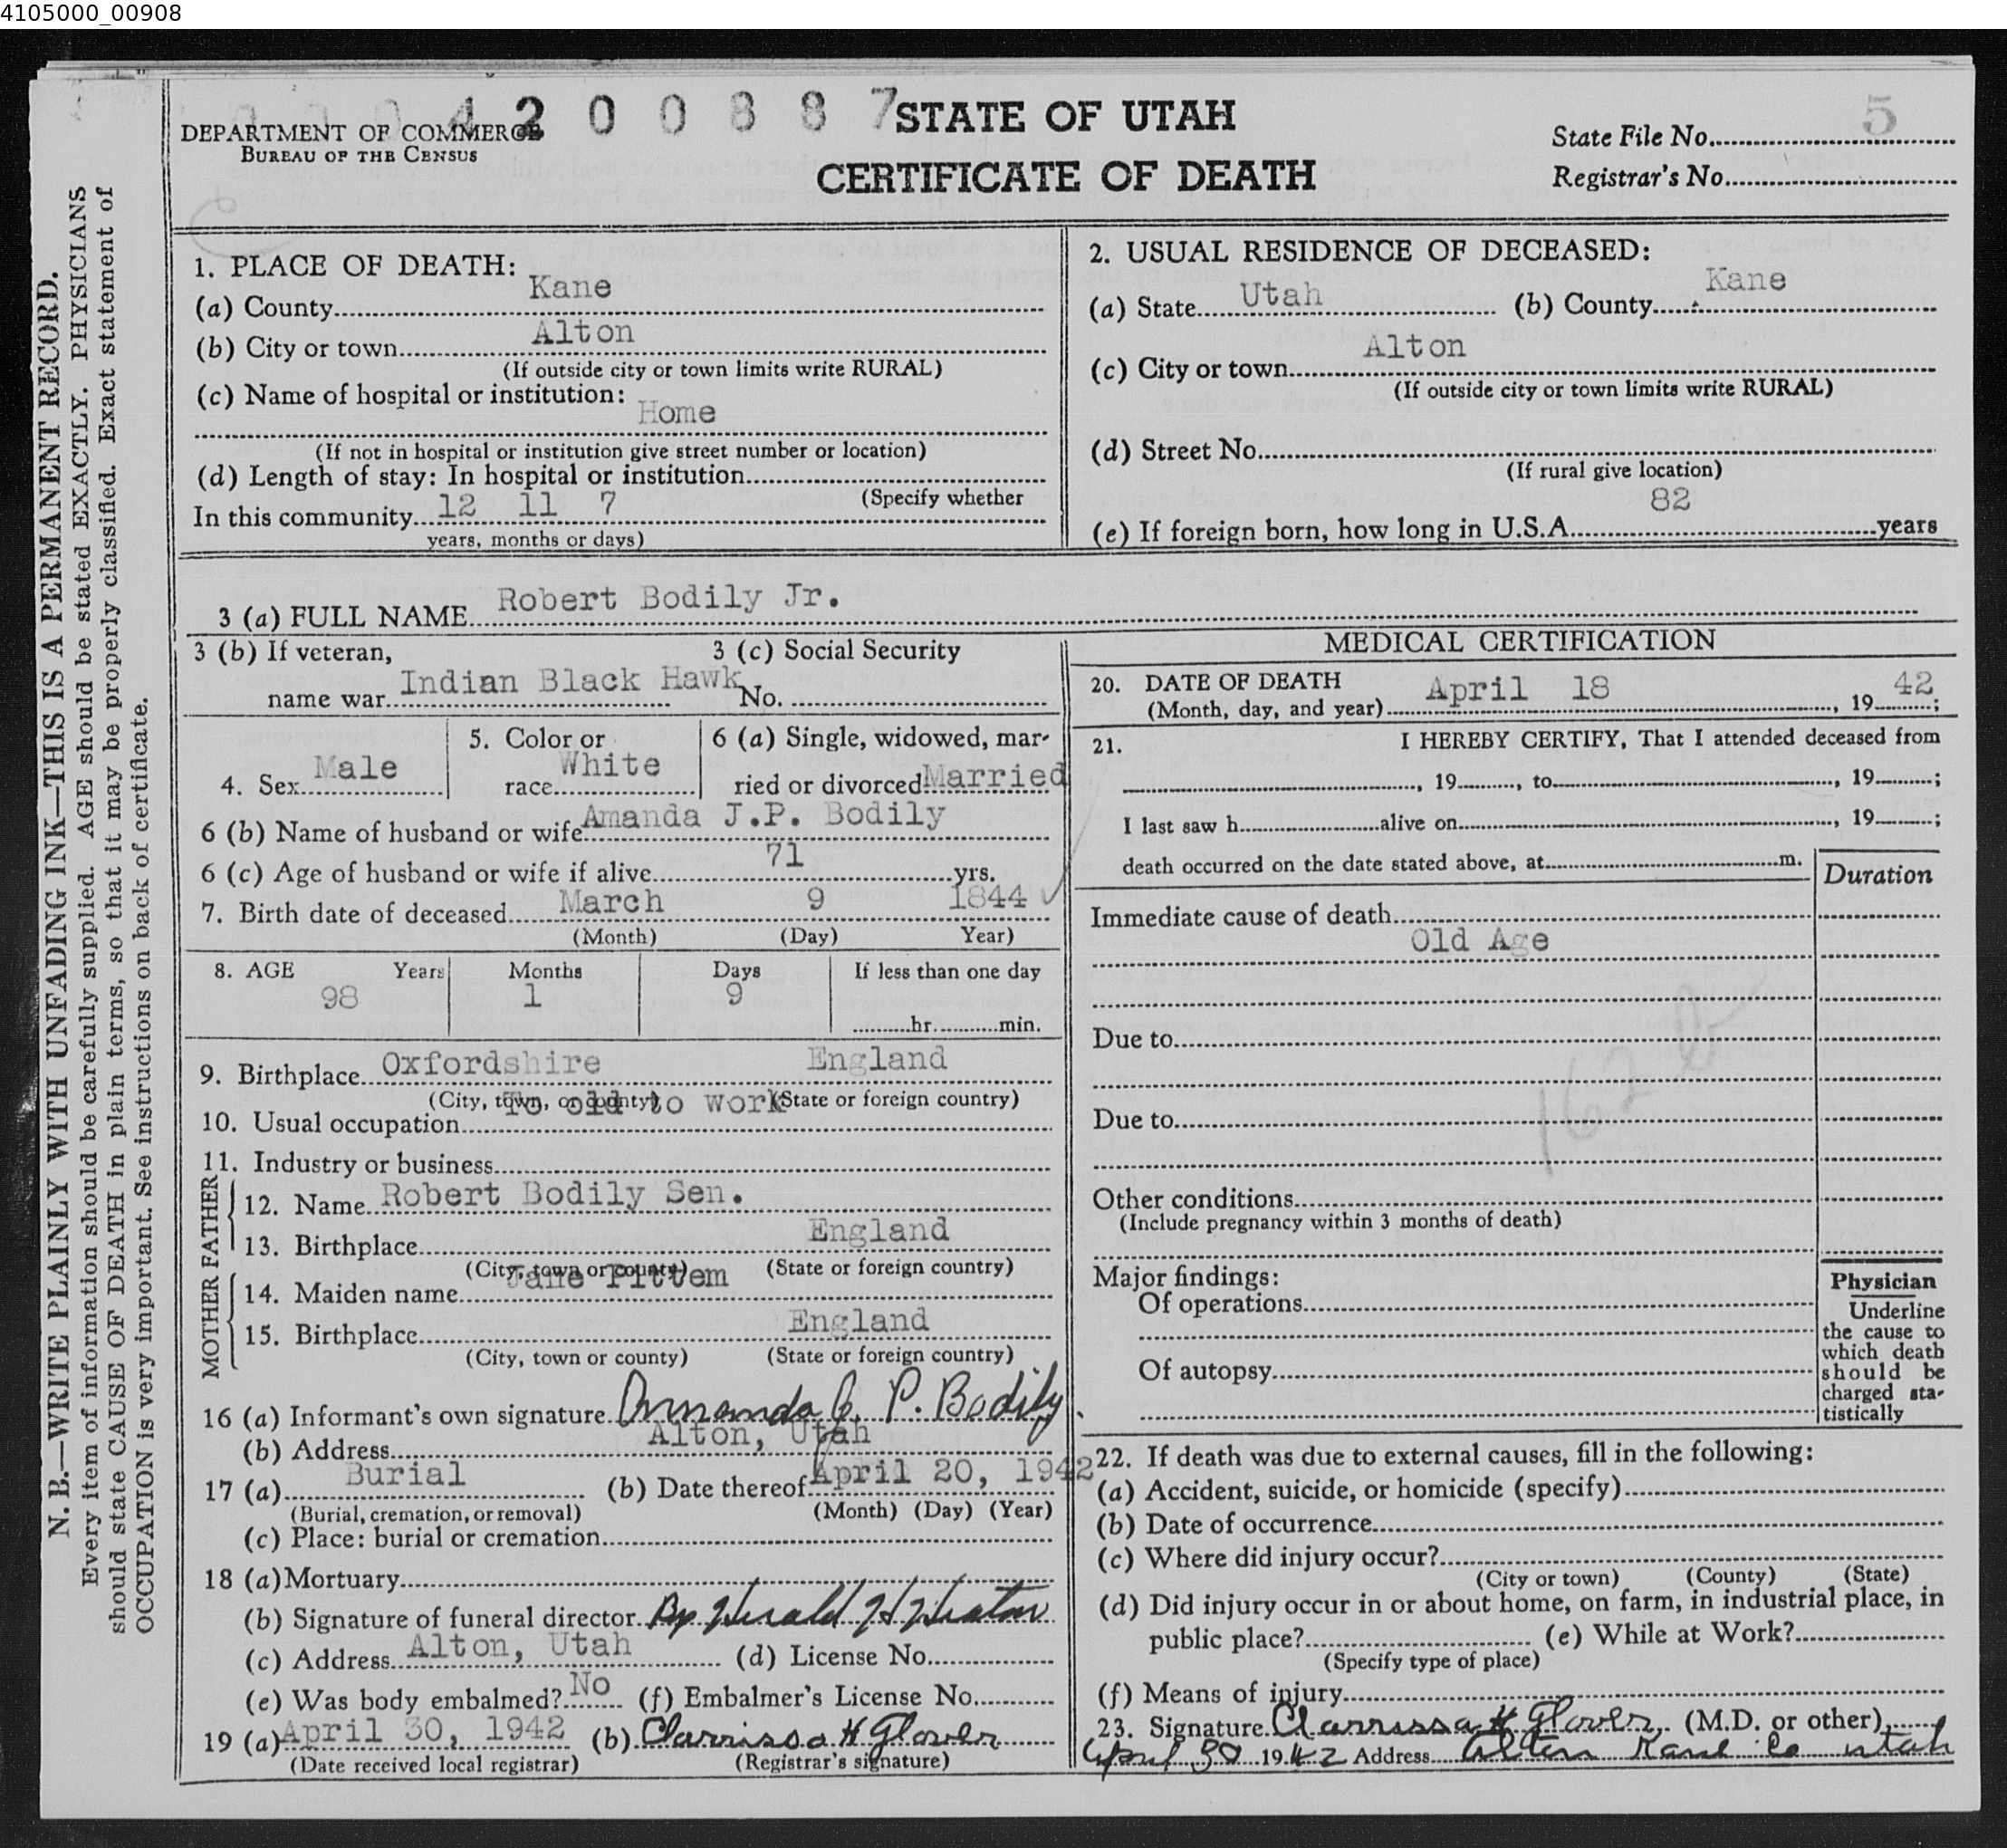 4105000_00908
4 2 0 0 8 8 7
DEPARTMENT OF COMMERCE
BUREAU OF THE CENSUS
STATE OF UTAH
CERTIFICATE OF DEATH
State File No. 5
Registrar's No.
N. B.—WRITE PLAINLY WITH UNFADING INK—THIS IS A PERMANENT RECORD.
Every item of information should be carefully supplied. AGE should be stated EXACTLY. PHYSICIANS
should state CAUSE OF DEATH in plain terms, so that it may be properly classified. Exact statement of
OCCUPATION is very important. See instructions on back of certificate.
1. PLACE OF DEATH:
(a) County Kane
(b) City or town Alton
(If outside city or town limits write RURAL)
(c) Name of hospital or institution:
Home
(If not in hospital or institution give street number or location)
(d) Length of stay: In hospital or institution
(Specify whether
In this community 12 11 7
years, months or days)
2. USUAL RESIDENCE OF DECEASED:
(a) State Utah (b) County Kane
(c) City or town Alton
(If outside city or town limits write RURAL)
(d) Street No.
(If rural give location)
(e) If foreign born, how long in U.S.A. 82 years
3 (a) FULL NAME Robert Bodily Jr.
3 (b) If veteran, 3 (c) Social Security
name war Indian Black Hawk No.
4. Sex Male
5. Color or
race White
6 (a) Single, widowed, mar-
ried or divorced Married
6 (b) Name of husband or wife Amanda J.P. Bodily
6 (c) Age of husband or wife if alive 71 yrs.
7. Birth date of deceased March 9 1844
(Month) (Day) Year)
8. AGE Years Months Days If less than one day
98 1 9
hr. min.
9. Birthplace Oxfordshire England
(City, town, or county) (State or foreign country)
10. Usual occupation To old to work
11. Industry or business
FATHER
12. Name Robert Bodily Sen.
13. Birthplace England
(City, town or county) (State or foreign country)
MOTHER
14. Maiden name Jane Pittem
15. Birthplace England
(City, town or county) (State or foreign country)
16 (a) Informant's own signature Ammanda J. P. Bodily
(b) Address Alton, Utah
17 (a) Burial (b) Date thereof April 20, 1942
(Burial, cremation, or removal) (Month) (Day) (Year)
(c) Place: burial or cremation
18 (a) Mortuary
(b) Signature of funeral director By Herald H Heaton
(c) Address Alton, Utah (d) License No.
(e) Was body embalmed? No (f) Embalmer's License No.
19 (a) April 30, 1942 (b) Clarrissa H Glover
(Date received local registrar) (Registrar's signature)
MEDICAL CERTIFICATION
20. DATE OF DEATH
(Month, day, and year) April 18, 1942;
21. I HEREBY CERTIFY, That I attended deceased from
, 19 , to , 19 ;
I last saw h alive on , 19 ;
death occurred on the date stated above, at m.
Duration
Immediate cause of death
Old Age
Due to
Due to
162 b
Other conditions
(Include pregnancy within 3 months of death)
Major findings:
Of operations
Of autopsy
Physician
Underline
the cause to
which death
should be
charged sta-
tistically
22. If death was due to external causes, fill in the following:
(a) Accident, suicide, or homicide (specify)
(b) Date of occurrence
(c) Where did injury occur?
(City or town) (County) (State)
(d) Did injury occur in or about home, on farm, in industrial place, in
public place? (e) While at Work?
(Specify type of place)
(f) Means of injury
23. Signature Clarrissa H Glover (M.D. or other)
April 30 1942 Address Alton Kane Co Utah